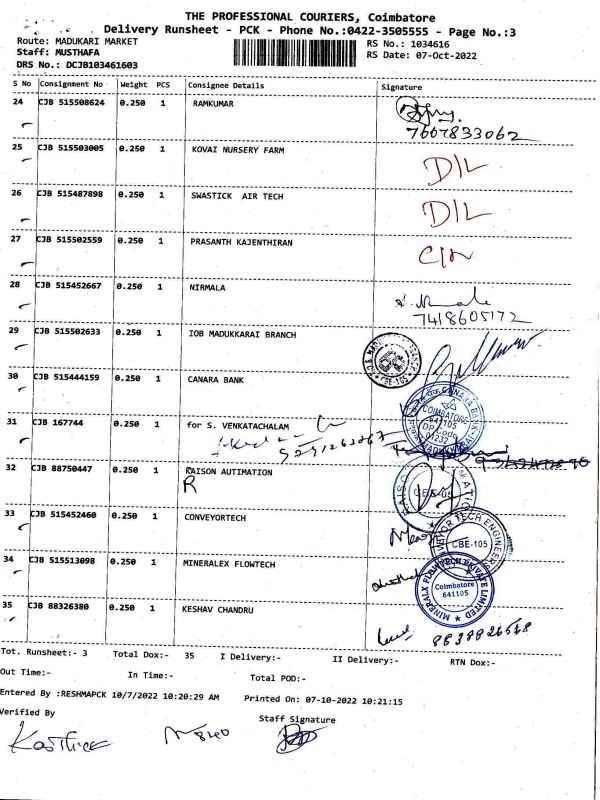 THE PROFESSIONAL COURIERS, Coimbatore
Delivery Runsheet - PCK - Phone No.:0422-3505555 - Page No.:3
Route: MADUKARI MARKET
RS No.: 1034616
Staff: MUSTHAFA
RS Date: 07-Oct-2022
DRS No.: DCJB103461603
S No Consignment No Weight PCS Consignee Details Signature
24 CJB 515508624 0.250 1 RAMKUMAR
7667833062
25 CJB 515503005 0.250 1 KOVAI NURSERY FARM D/L
26 CJB 515487898 0.250 1 SWASTICK AIR TECH D/L
27 CJB 515502559 0.250 1 PRASANTH KAJENTHIRAN
28 CJB 515452667 0.250 1 NIRMALA
7418605172
29 CJB 515502633 0.250 1 IOB MADUKKARAI BRANCH
CBE-105
30 CJB 515444159 0.250 1 CANARA BANK
CANARA BANK
COIMBATORE
641105
DP Code
01232
31 CJB 167744 0.250 1 for S. VENKATACHALAM
32 CJB 88750447 0.250 1 RAISON AUTIMATION
R
33 CJB 515452460 0.250 1 CONVEYORTECH
TECH ENGINEER
CBE-105
34 CJB 515513098 0.250 1 MINERALEX FLOWTECH
MINERALX FLOWTECH PRIVATE LIMITED
Coimbatore
641105
35 CJB 88326380 0.250 1 KESHAV CHANDRU
Tot. Runsheet:- 3 Total Dox:- 35 I Delivery:- II Delivery:- RTN Dox:-
Out Time:- In Time:- Total POD:-
Entered By :RESHMAPCK 10/7/2022 10:20:29 AM Printed On: 07-10-2022 10:21:15
Verified By Staff Signature
Kasthice